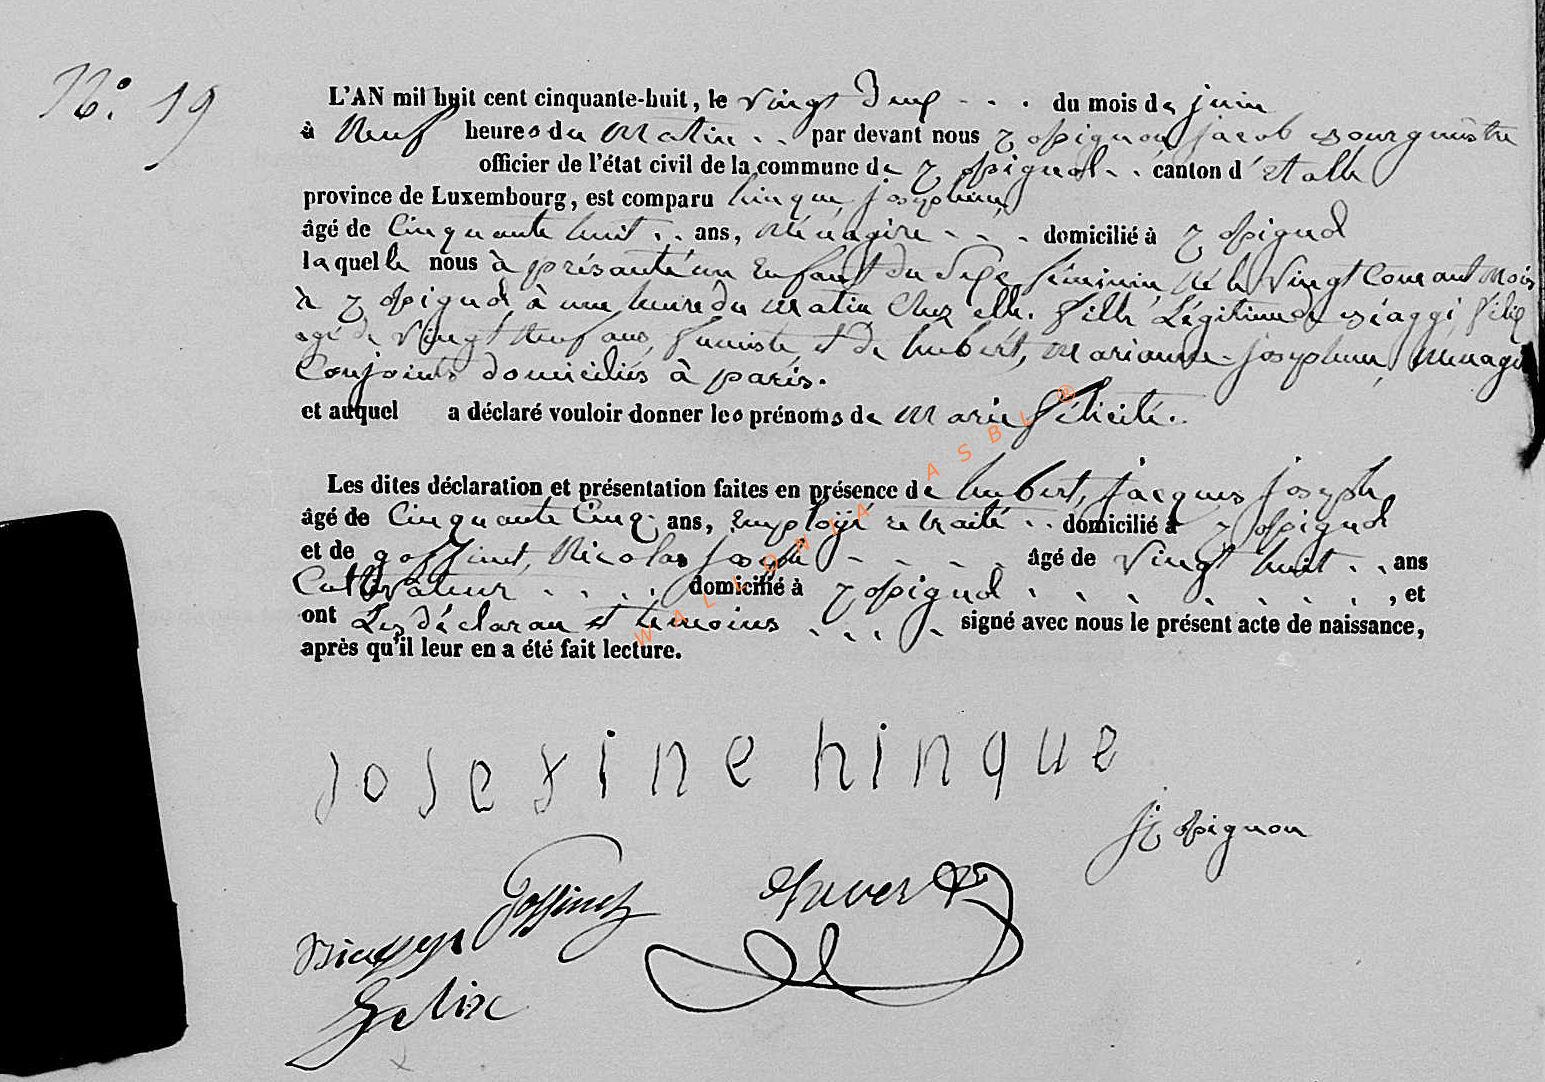 No. 19
L'AN mil huit cent cinquante-huit, le vingt Deux du mois de juin
à Neuf heures du Matin par devant nous Zopignon jacob Bourgmêstre
officier de l'état civil de la commune de canton d'Etalle
province de Luxembourg, est comparu hinque, josephine
âgé de Cinquante huit ans, Ménagère domicilié à
laquelle nous à présanté un Enfant du Sexe féminin, né le Vingt Courant Mois
à à une heure du Matin Chez elle. fille Légitime de Biaggi, félix
agé de Vingt Neuf ans, fumiste, et de hubert, Marianne josephine, Menagère
Conjoints domiciliés à paris.
et auquel a déclaré vouloir donner les prénoms de Marie félicité.
Les dites déclaration et présentation faites en présence de hubert, jacques joseph
âgé de Cinquante Cinq ans, Employé retraité domicilié à
et de goffinet, Nicolas joseph âgé de Vingt huit ans
Cultivateur domicilié à , et
ont Les déclaran et temoins signé avec nous le présent acte de naissance,
après qu'il leur en a été fait lecture.
WALLONIA ASBL ®
Josefine hinque
J Zopignon
Goffinet
Felix